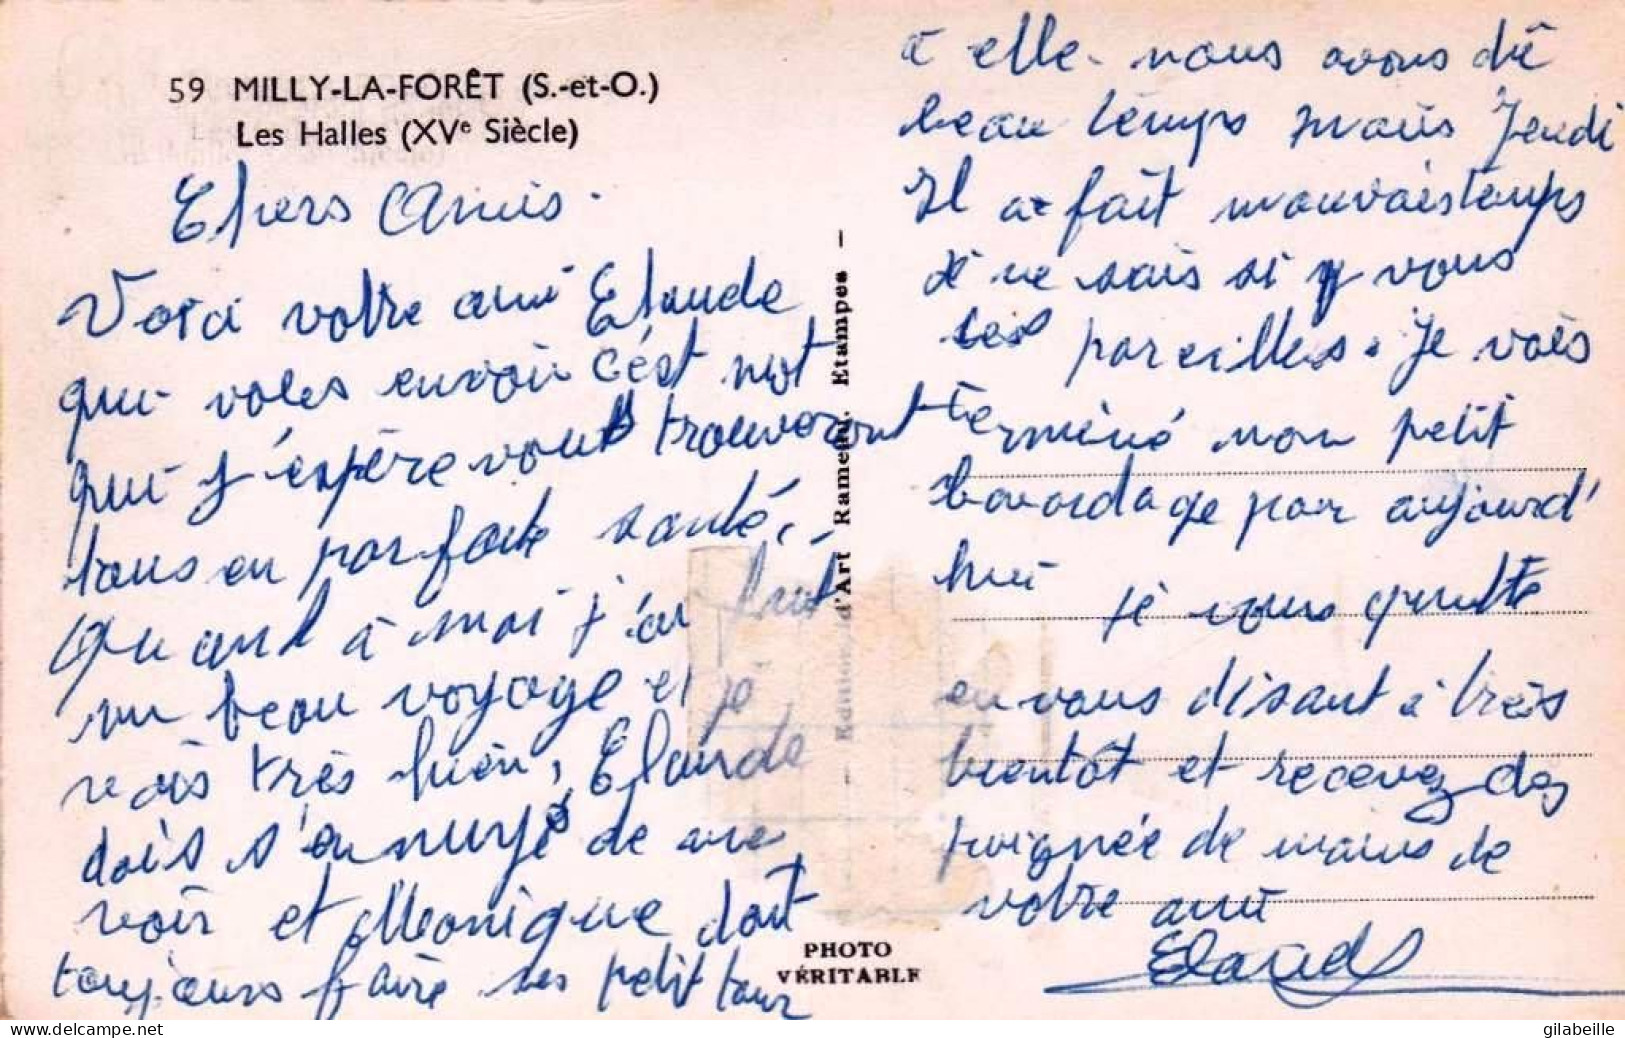 59 MILLY-LA-FORÊT (S.-et-O.)
Les Halles (XVe Siècle)
Chers Amis.
Voici votre ami Claude
qui voles envoir c'est mot
qui j'éspère vous trouvoront
tous en parfaite santé,
Quand à moi j'ai fait
un beau voyage et je
vois très bien, Claude
dois s'ennuyé de me
voir et Monique doit
toujours faire ses petit tour
à elle. nous avons dû
beau temps mais Jeudi
Il a fait mauvais temps
Je ne sais si y vous
les pareilles. Je vois
terminé mon petit
bavardage par aujourd'
hui je vous quitte
en vous disant à très
bientôt et recevez des
poignée de mains de
votre ami
Claude
Edition d'Art Rameau. Etampes
PHOTO
VÉRITABLE
www.delcampe.net
gilabeille